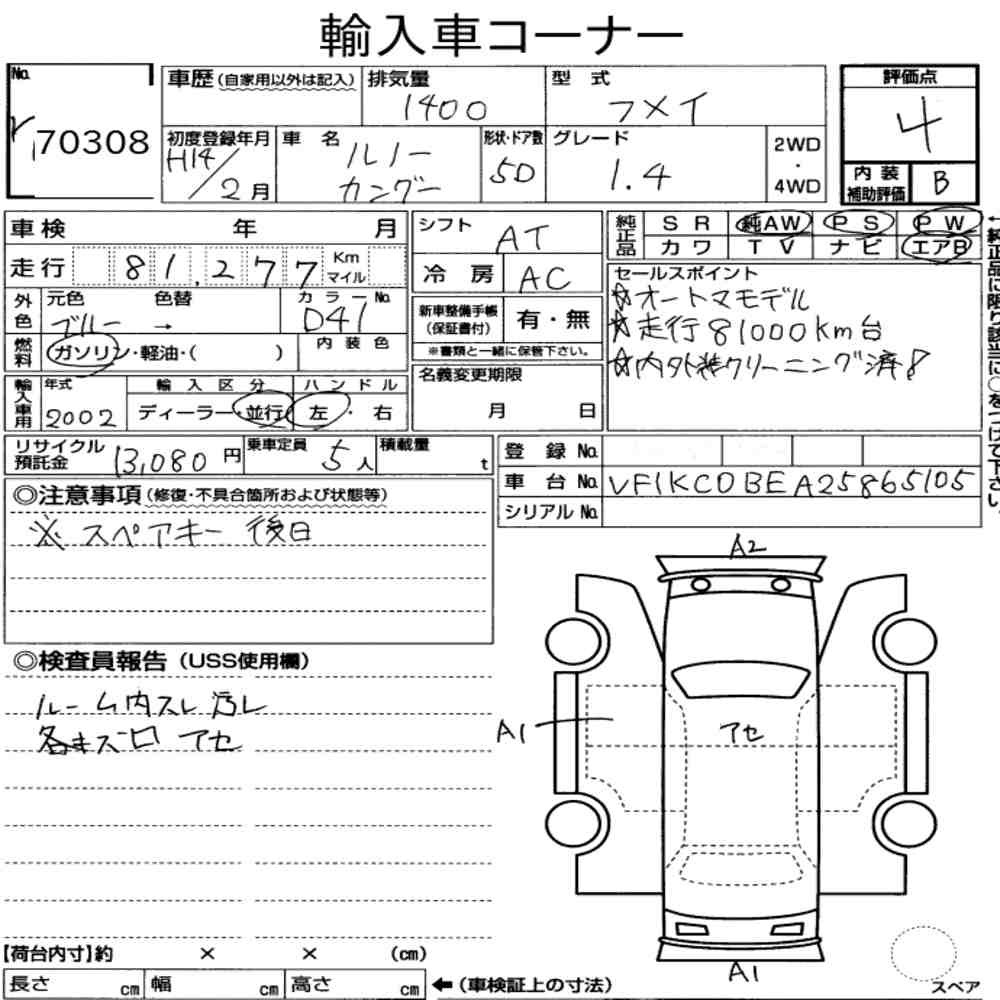 輸入車コーナー
No. 70308
車歴(自家用以外は記入) 排気量 1400 型式 フメイ
評価点 4
初度登録年月 H14/2月 車名 ルノー カングー 形状・ドア数 5D グレード 1.4 2WD・4WD
内装補助評価 B
車検 年 月
シフト AT
純正品 SR 純AW PS PW
カワ TV ナビ エアB
走行 81,277 Km マイル
冷房 AC
セールスポイント
☆オートマモデル
☆走行81000km台
☆内外装クリーニング済!
外色 元色 ブルー 色替 → カラーNo. D41
新車整備手帳(保証書付) 有・無
※書類と一緒に保管下さい。
燃料 ガソリン・軽油・( ) 内装色
名義変更期限 月 日
輸入車用 年式 2002 輸入区分 ディーラー・並行 ハンドル 左・右
←純正品に限り該当に○をつけて下さい。
リサイクル預託金 13,080円 乗車定員 5人 積載量 t
登録No.
車台No. VF1KC0BEA25865105
シリアルNo.
◎注意事項(修復・不具合箇所および状態等)
※ スペアキー 後日
◎検査員報告(USS使用欄)
ルーム内スレ汚レ
各キズ凹 アセ
A2
A1
アセ
A1
【荷台内寸】約 × × (cm)
長さ cm 幅 cm 高さ cm ←(車検証上の寸法)
スペア